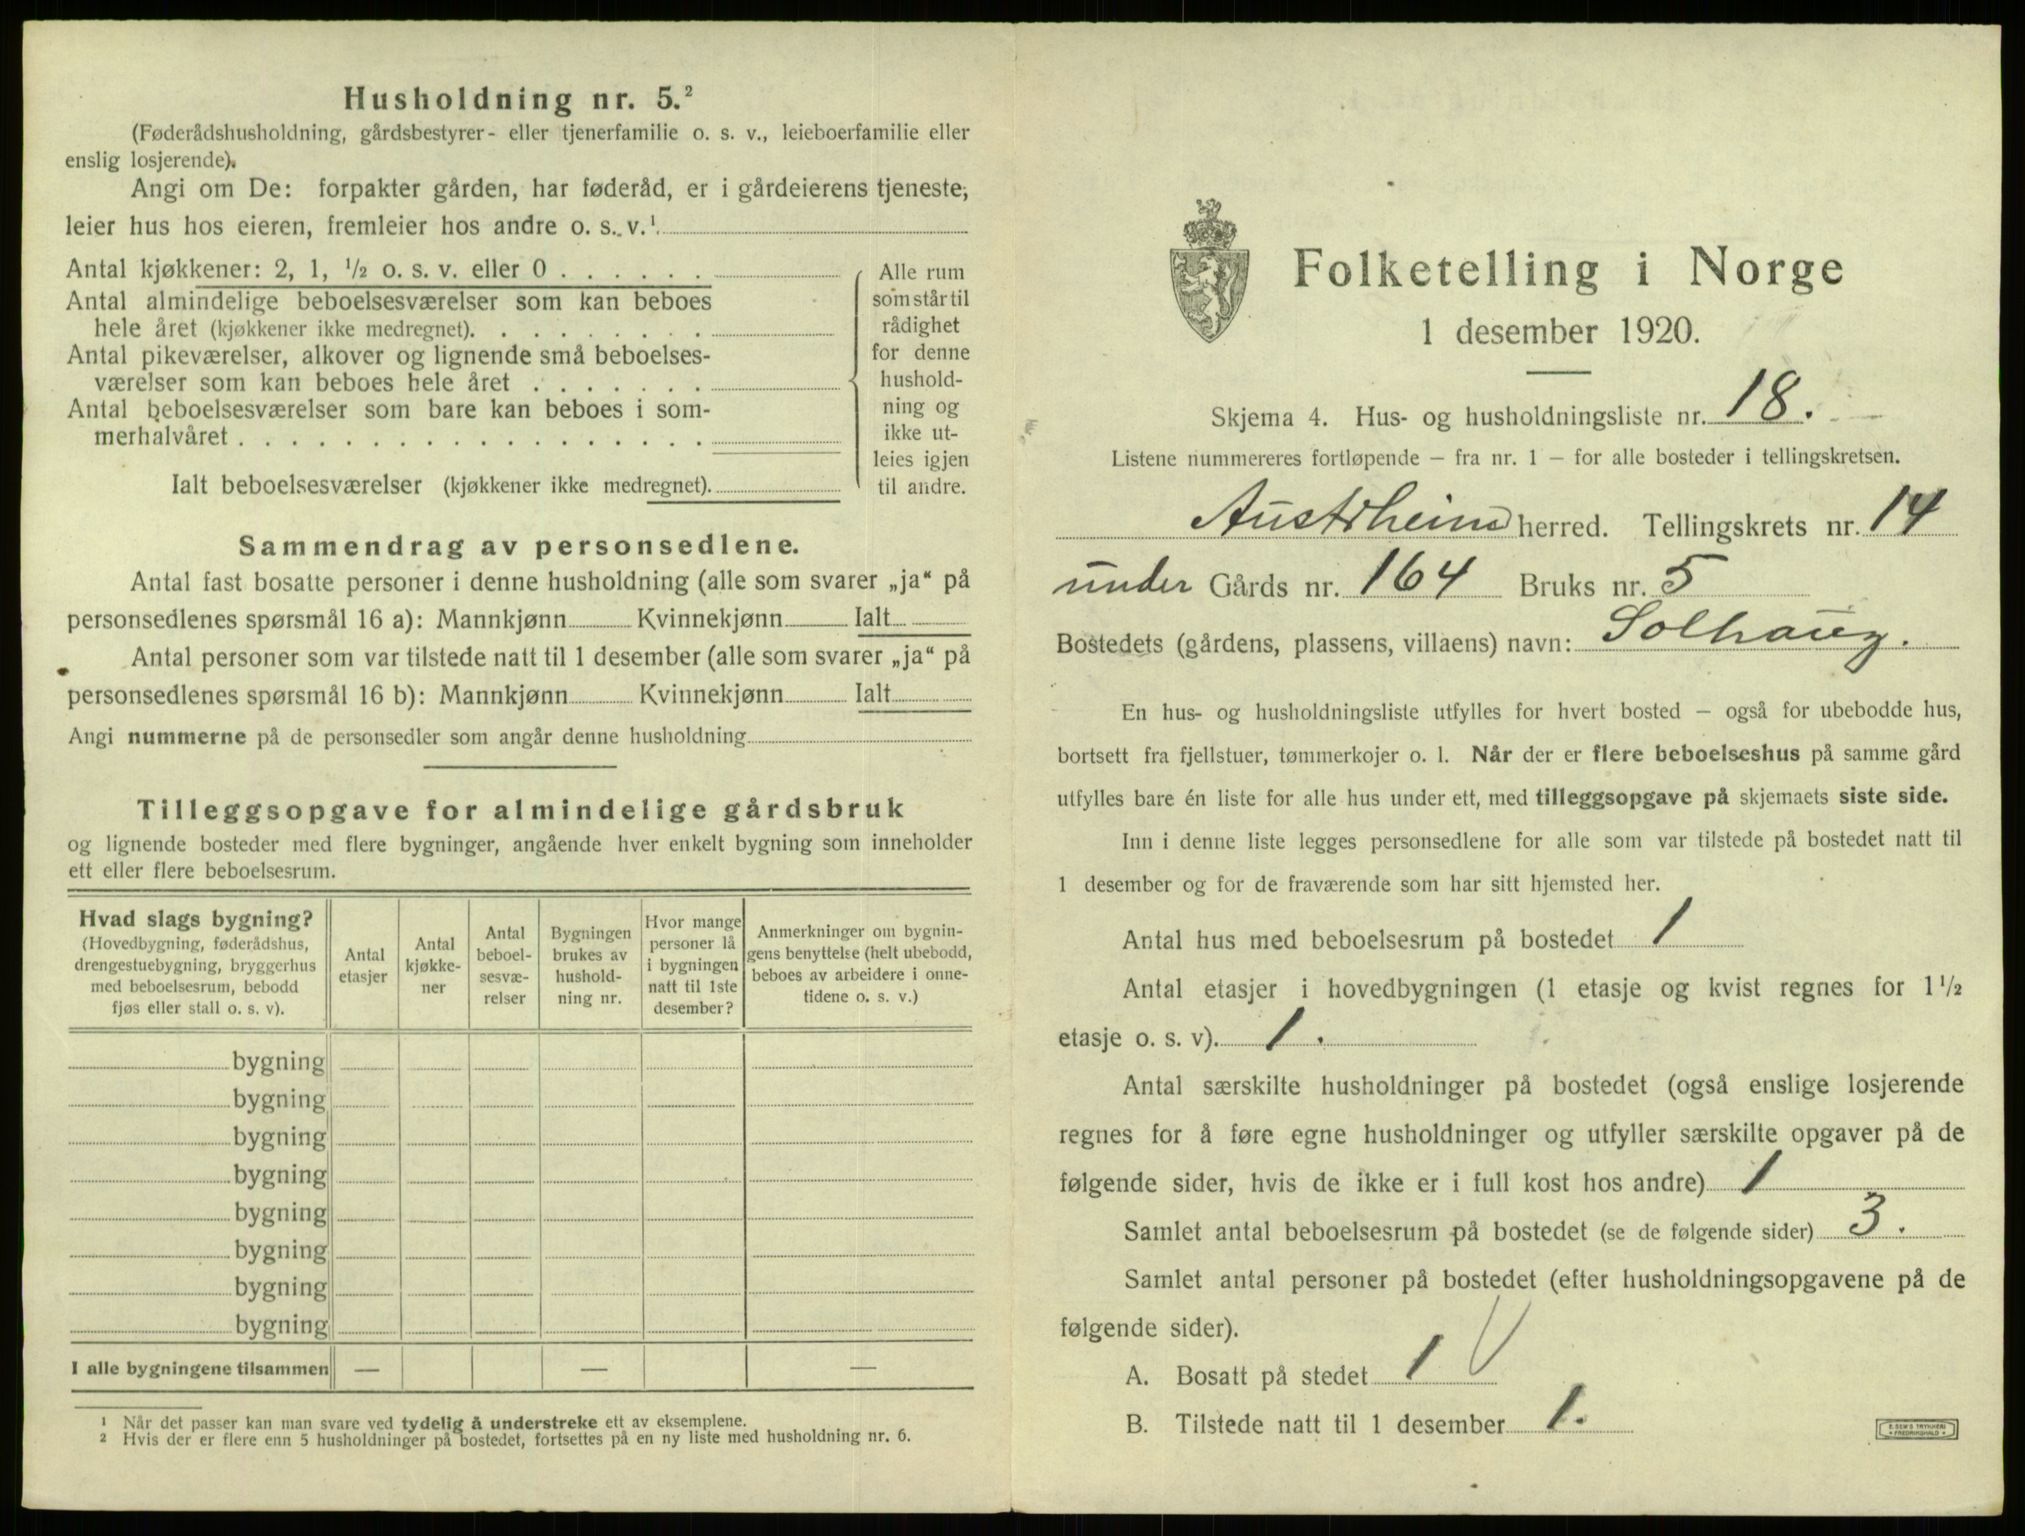 Husholdning nr. 5.²
(Føderådshusholdning, gårdsbestyrer- eller tjenerfamilie o. s. v., leieboerfamilie eller
enslig losjerende).
Angi om De: forpakter gården, har føderåd, er i gårdeierens tjeneste,
leier hus hos eieren, fremleier hos andre o. s. v.¹
Antal kjøkkener: 2, 1, ½ o. s. v. eller 0 . . . . . .
Antal almindelige beboelsesværelser som kan beboes
hele året (kjøkkener ikke medregnet). . . . . . . . .
Antal pikeværelser, alkover og lignende små beboelses-
værelser som kan beboes hele året . . . . . . .
Antal beboelsesværelser som bare kan beboes i som-
merhalvåret . . . . . . . . . . . . . . . . . .
Ialt beboelsesværelser (kjøkkener ikke medregnet).
Alle rum
som står til
rådighet
for denne
hushold-
ning og
ikke ut-
leies igjen
til andre.
Sammendrag av personsedlene.
Antal fast bosatte personer i denne husholdning (alle som svarer „ja“ på
personsedlenes spørsmål 16 a): Mannkjønn Kvinnekjønn Ialt
Antal personer som var tilstede natt til 1 desember (alle som svarer „ja“ på
personsedlenes spørsmål 16 b): Mannkjønn Kvinnekjønn Ialt
Angi nummerne på de personsedler som angår denne husholdning
Tilleggsopgave for almindelige gårdsbruk
og lignende bosteder med flere bygninger, angående hver enkelt bygning som inneholder
ett eller flere beboelsesrum.
Hvad slags bygning?
(Hovedbygning, føderådshus,
drengestuebygning, bryggerhus
med beboelsesrum, bebodd
fjøs eller stall o. s. v).
Antal
etasjer
Antal
kjøkke-
ner
Antal
beboel-
sesvæ-
relser
Bygningen
brukes av
hushold-
ning nr.
Hvor mange
personer lå
i bygningen
natt til 1ste
desember?
Anmerkninger om bygnin-
gens benyttelse (helt ubebodd,
beboes av arbeidere i onne-
tidene o. s. v.)
bygning
bygning
bygning
bygning
bygning
bygning
bygning
bygning
I alle bygningene tilsammen — — —
¹ Når det passer kan man svare ved tydelig å understreke ett av eksemplene.
² Hvis der er flere enn 5 husholdninger på bostedet, fortsettes på en ny liste med husholdning nr. 6.
Folketelling i Norge
1 desember 1920.
Skjema 4. Hus- og husholdningsliste nr. 18.
Listene nummereres fortløpende — fra nr. 1 — for alle bosteder i tellingskretsen.
Austrheim herred. Tellingskrets nr. 14
under Gårds nr. 164 Bruks nr. 5
Bostedets (gårdens, plassens, villaens) navn: Solhaug.
En hus- og husholdningsliste utfylles for hvert bosted — også for ubebodde hus,
bortsett fra fjellstuer, tømmerkojer o. l. Når der er flere beboelseshus på samme gård
utfylles bare én liste for alle hus under ett, med tilleggsopgave på skjemaets siste side.
Inn i denne liste legges personsedlene for alle som var tilstede på bostedet natt til
1 desember og for de fraværende som har sitt hjemsted her.
Antal hus med beboelsesrum på bostedet 1
Antal etasjer i hovedbygningen (1 etasje og kvist regnes for 1½
etasje o. s. v). 1.
Antal særskilte husholdninger på bostedet (også enslige losjerende
regnes for å føre egne husholdninger og utfyller særskilte opgaver på de
følgende sider, hvis de ikke er i full kost hos andre) 1
Samlet antal beboelsesrum på bostedet (se de følgende sider) 3.
Samlet antal personer på bostedet (efter husholdningsopgavene på de
følgende sider).
A. Bosatt på stedet 1
B. Tilstede natt til 1 desember 1.
E. SEM'S TRYKKERI
• FREDRIKSHALD •